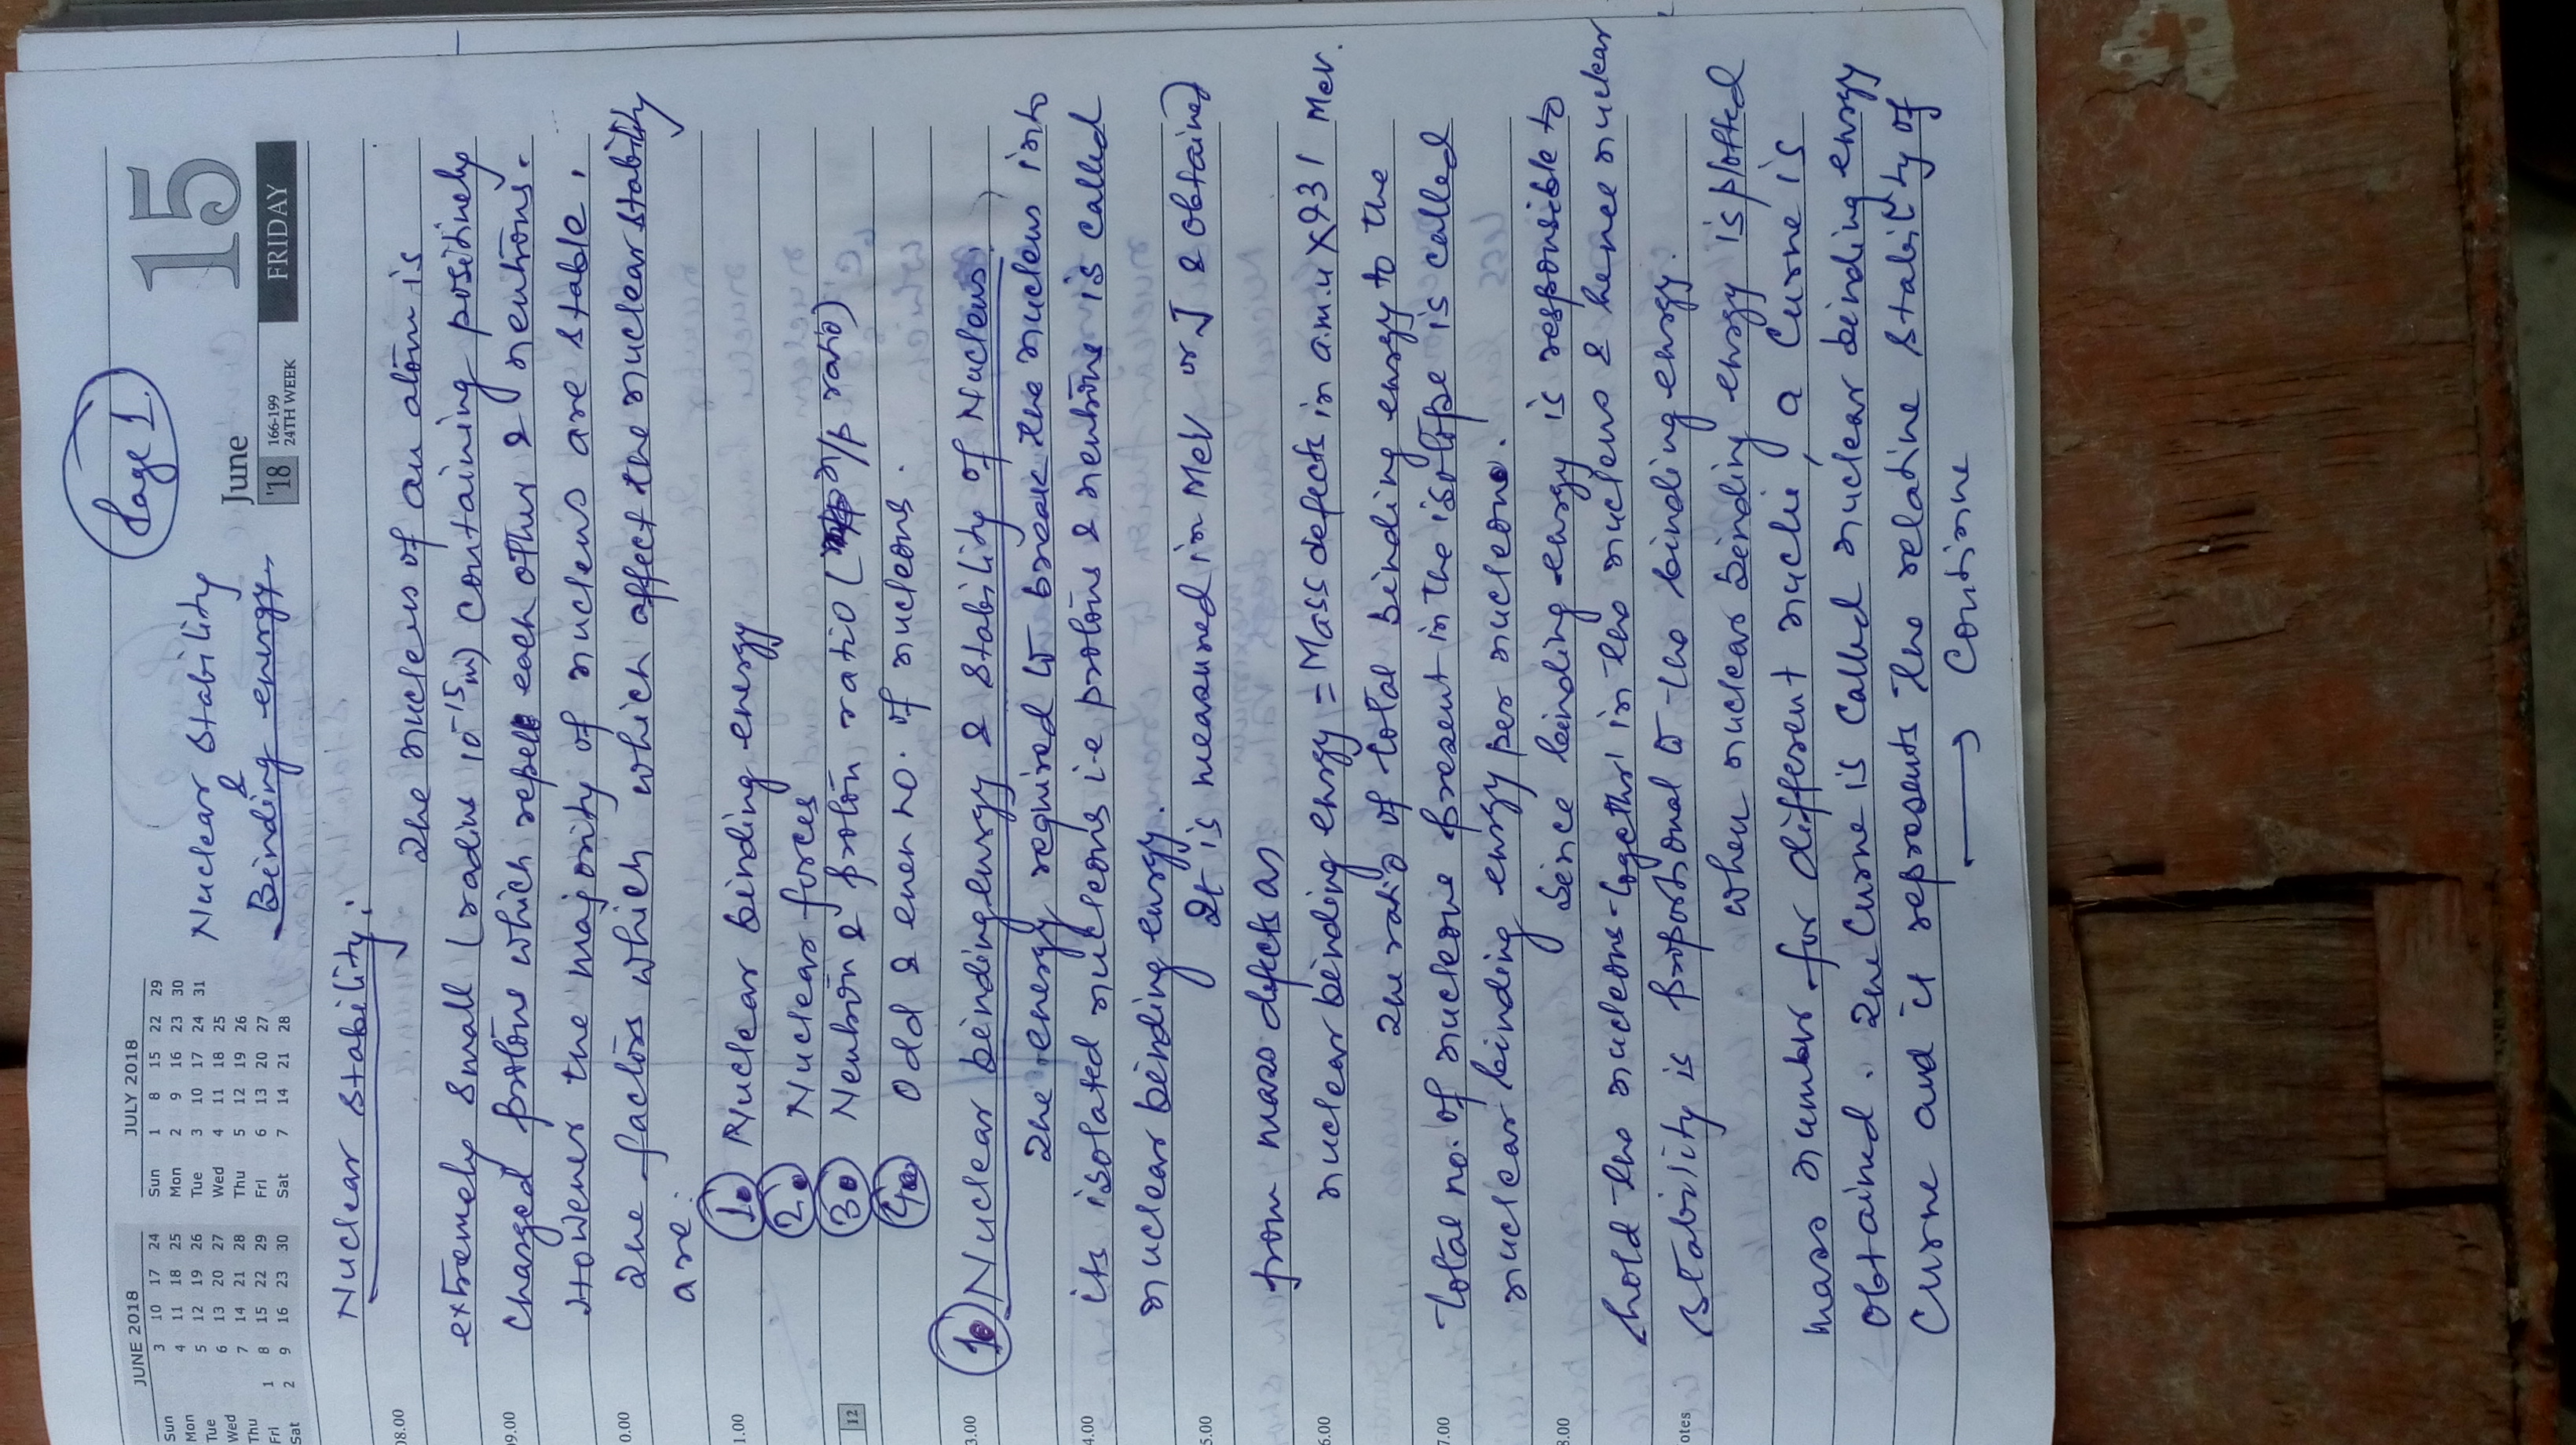 Page 1
JUNE 2018
Sun 3 10 17 24
Mon 4 11 18 25
Tue 5 12 19 26
Wed 6 13 20 27
Thu 7 14 21 28
Fri 1 8 15 22 29
Sat 2 9 16 23 30
JULY 2018
Sun 1 8 15 22 29
Mon 2 9 16 23 30
Tue 3 10 17 24 31
Wed 4 11 18 25
Thu 5 12 19 26
Fri 6 13 20 27
Sat 7 14 21 28
Nuclear Stability
&
Binding energy
June
'18
166-199
24TH WEEK
15
FRIDAY
Nuclear Stability:
08.00
The nucleus of an atom is
extremely small (radius 10⁻¹⁵m) containing positively
09.00
charged protons which repel each other & neutrons.
However the majority of nucleus are stable.
0.00
The factors which which affect the nuclear stability
are.
1.00
1. Nuclear binding energy
2. Nuclear forces
12
3. Neutron & proton ratio (n/p ratio)
4. Odd & even no. of nucleons.
3.00
1. Nuclear binding energy & stability of Nucleus:
The energy required to break the nucleus into
4.00
its isolated nucleons i.e protons & neutrons is called
nuclear binding energy.
5.00
It is measured in MeV or J & obtained
from mass defects as
6.00
nuclear binding energy = Mass defects in a.m.u X 931 Mev.
The ratio of total binding energy to the
7.00
total no. of nucleons present in the isotope is called
nuclear binding energy per nucleons.
8.00
Since binding energy is responsible to
hold the nucleons together in the nucleus & hence nuclear
otes
stability is proportional to the binding energy.
When nuclear binding energy is plotted
mass number for different nuclei, a curve is
obtained. The curve is called nuclear binding energy
curve and it represents the relative stability of
→ Continue